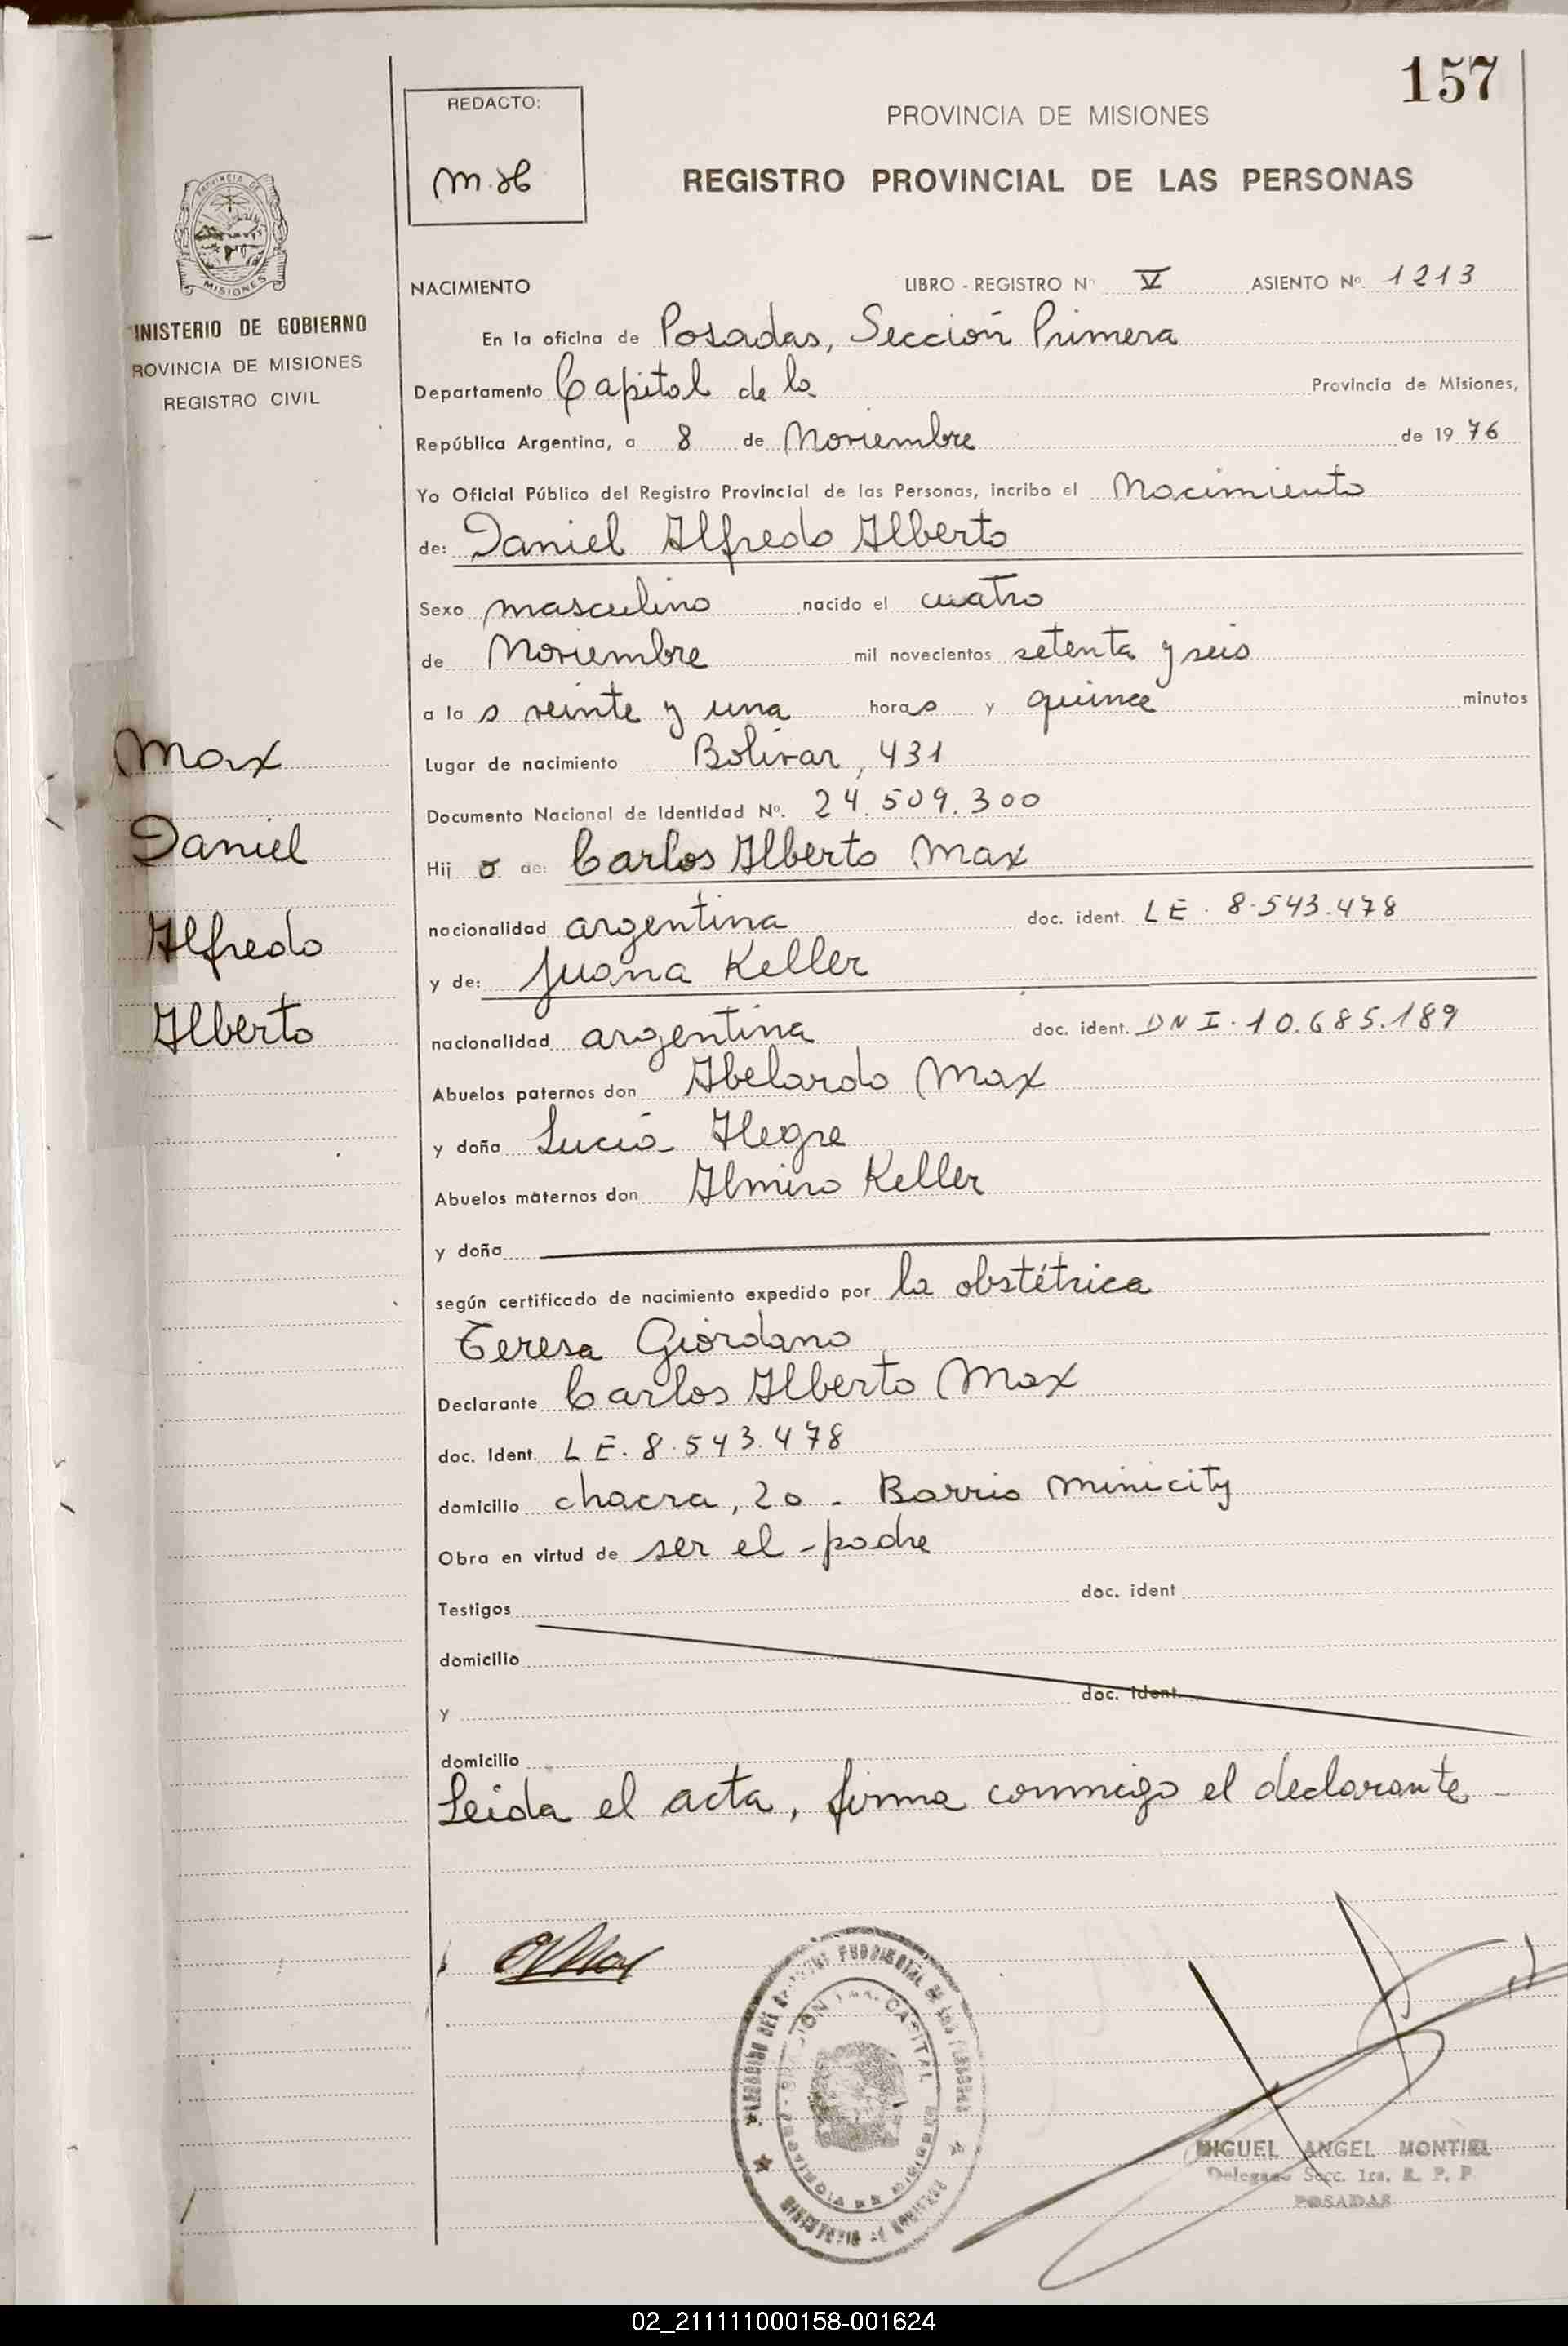 157
REDACTO:
M.H
PROVINCIA DE MISIONES
REGISTRO PROVINCIAL DE LAS PERSONAS
PROVINCIA DE
MISIONES
INISTERIO DE GOBIERNO
ROVINCIA DE MISIONES
REGISTRO CIVIL
NACIMIENTO LIBRO - REGISTRO Nº V ASIENTO Nº 1213
En la oficina de Posadas, Sección Primera
Departamento Capital de la Provincia de Misiones,
República Argentina, a 8 de Noviembre de 1976
Yo Oficial Público del Registro Provincial de las Personas, incribo el Nacimiento
de: Daniel Alfredo Alberto
Sexo masculino nacido el cuatro
de Noviembre mil novecientos setenta y seis
a la s veinte y una horas y quince minutos
Lugar de nacimiento Bolívar, 431
Documento Nacional de Identidad Nº. 24.509.300
Hij o de: Carlos Alberto Max
nacionalidad argentina doc. ident. LE. 8.543.478
y de: Juana Keller
nacionalidad argentina doc. ident. DNI. 10.685.189
Abuelos paternos don Abelardo Max
y doña Lucía Alegre
Abuelos maternos don Almiro Keller
y doña
según certificado de nacimiento expedido por la obstétrica
Teresa Giordano
Declarante Carlos Alberto Max
doc. Ident. LE. 8.543.478
domicilio chacra, 20 - Barrio Minicity
Obra en virtud de ser el padre
Testigos doc. ident
domicilio
y doc. ident.
domicilio
Leida el acta, firma conmigo el declarante -
Max
Daniel
Alfredo
Alberto
MIGUEL ANGEL MONTIEL
Delegado Secc. 1ra. R. P. P.
POSADAS
02_211111000158-001624